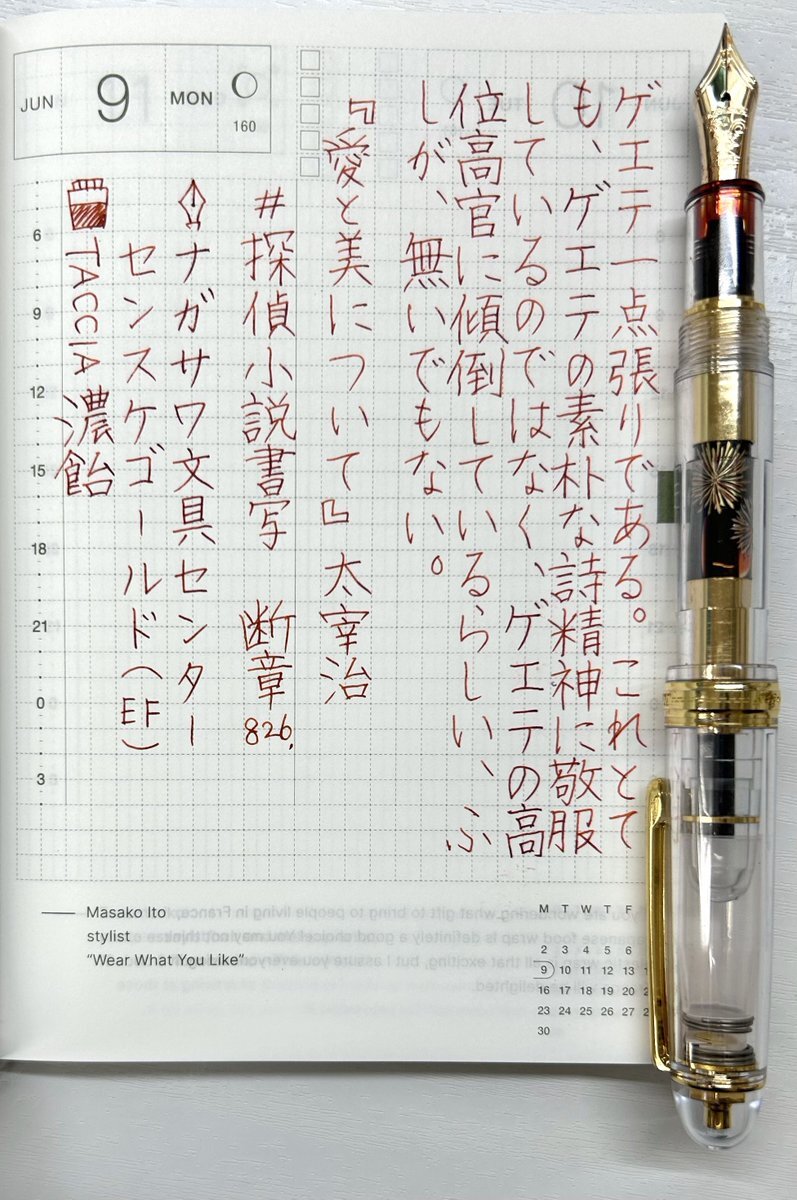 JUN 9 MON
160
ゲエテ一点張りである。これとて
も、ゲエテの素朴な詩精神に敬服
しているのではなく、ゲエテの高
位高官に傾倒しているらしい、ふ
しが、無いでもない。
『愛と美について』太宰治
#探偵小説書写 断章826.
ナガサワ文具センター
センスケゴールド(EF)
TACCIA 濃飴
6
9
12
15
18
21
0
3
Masako Ito
stylist
“Wear What You Like”
M T W T F
2 3 4 5 6
9 10 11 12 13
16 17 18 19 20
23 24 25 26 27
30